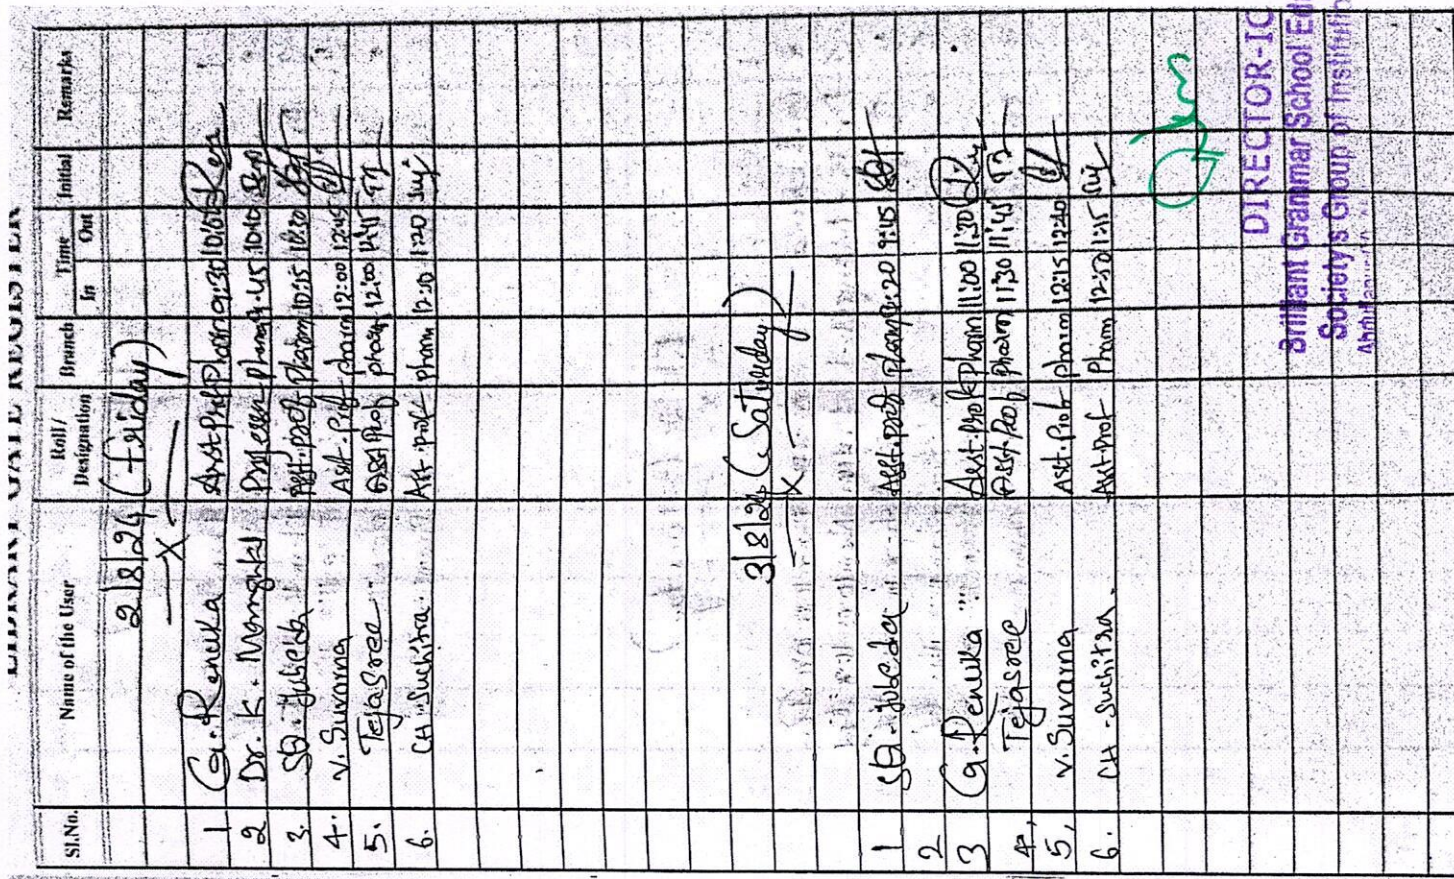 LIBRARY GATE REGISTER
Sl.No. Name of the User Roll/ Designation Branch Time In Out Initial Remarks
2/8/24 (Friday)
X
1 G. Renuka Asst.Prof Pharm 9:30
2 Dr. K. Professor pharm 9:45 10:10
3. SD. Asst. prof Pharm 10:15
4. V. Suvarna Asst. Prof pharm 12:00 12:45
5. Tejasree Asst Prof pharm 12:00
6. CH. Suchitra Asst. prof pharm 1:20
3/8/24 (Saturday)
X
1 SD. Asst. prof pharm 9:20 9:45
2
3 G. Renuka Asst. Prof Pharm 11:00 11:30
4, Tejasree Asst. Prof pharm 11:30 11:45
5, V. Suvarna Asst. Prof pharm 12:15 12:40
6. CH. Suchitra. Asst. Prof Pharm 12:50 1:15
DIRECTOR-IC
Brilliant Grammar School Ed
Society's Group of Institutio